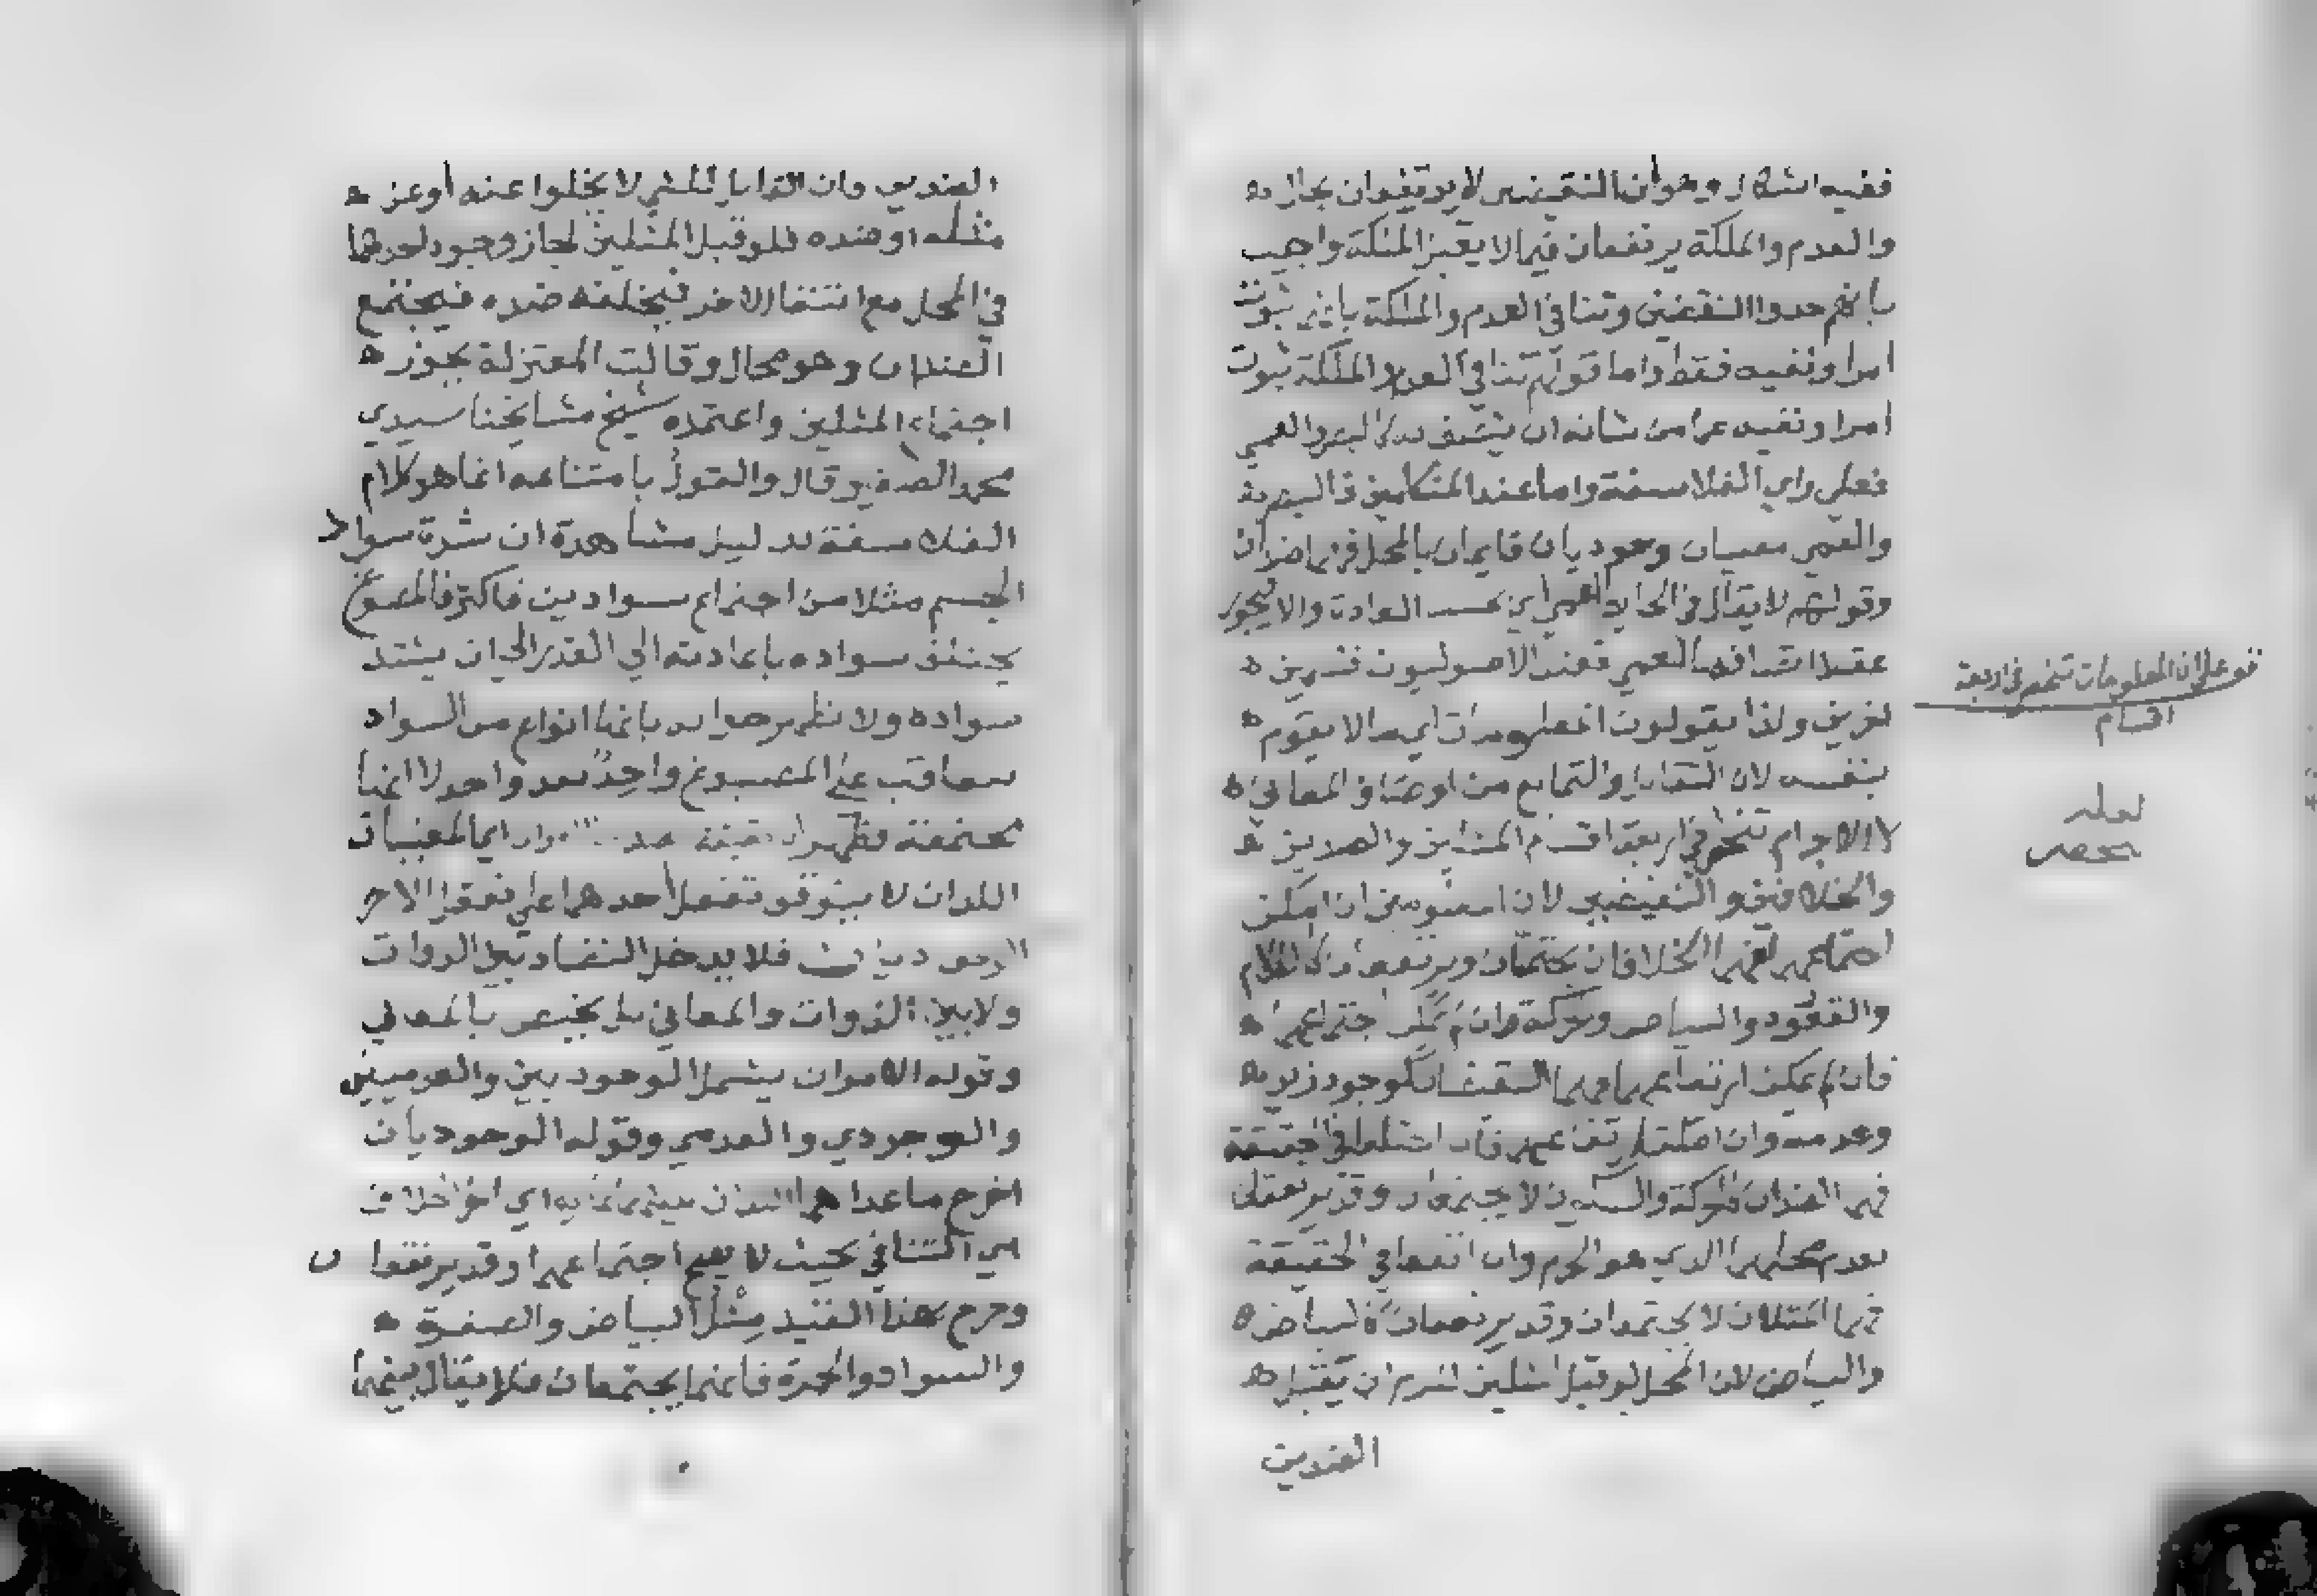 ففيه اشكال وهو ان النقيضين لا يرتفعان بحال
والعدم والملكة يرتفعان فيما لا يقبل الملكة واجيب
بانهم حدوا النقيضين وتنافي العدم والملكة بانه ثبوت
امر او نفيه فقط واما قولهم تنافي العدم والملكة ثبوت
امر او نفيه عما من شانه ان يتصف به كالبصر والعمي
فعلي راي الفلاسفة واما عند المتكلمين فالبصر
والعمي معنيان وجوديان قايمان بالمحل فهما ضدان
وقولهم لا يقال في الحايط اعمي اي بحسب العادة والا فيجوز
عقلا اتصافه بالعمي فعند الاصوليون قسمين
لغرين ولذا يقولون المعلومات اي ما لا يقوم
بنفسه لان التقابل والتمانع من اوصاف المعاني
لا الاجرام تنحصر في اربعة اقسام المثلين والضدين
والخلافين والنقيضين لان المعلومين ان امكن
اجتماعهما فهما الخلافان يجتمعان ويرتفعان كالكلام
والقعود والبياض وحركة وان لم يمكن اجتماعهما
فان لم يمكن ارتفاعهما فهما النقيضان كوجود زيد
وعدمه وان امكن ارتفاعهما فان اختلفا في الحقيقة
فهما الضدان كالحركة والسكون لا يجتمعان وقد يرتفعان
بعدم محلهما الذي هو الجرم وان اتفقا في الحقيقة
فهما المثلان لا يجتمعان وقد يرتفعان كالبياض
والبياض لان المحل لو قبل المثلين لزم ان يقبل
الضدين
قف علي ان المعلومات تنحصر في اربعة
اقسام
لعله
تنحصر
الضدين فان القابل للشي لا يخلوا عنه أو عن
مثله او ضده فلو قبل المثلين لجاز وجود احدهما
في المحل مع انتفا الاخر فيخلفه ضده فيجتمع
الضدان وهو محال وقالت المعتزلة يجوز
اجتماع المثلين واعتمده شيخ مشايخنا سيدي
محمد الصغير وقال والقول بامتناعه انما هو كلام
الفلاسفة بدليل مشاهدة ان شدة سواد
الجسم مثلا من اجتماع سوادين فاكثر فالمصبوغ
يختلف سواده باعادته الي القدر الي ان يشتد
سواده ولا نظهر جوابه بانها انواع من السواد
تعاقب علي المصبوغ واحد بعد واحد لا انها
مجتمعة فظهر ان حقيقة الضدان اي المعنيان
اللدان لا يتوقف تعقل أحدهما علي تعقل الاخر
الوجوديان فلا يدخل التضاد بين الدوات
ولا بين الذوات والمعاني بل يختص بالمعاني
وقوله الامران يشمل الوجوديين والعدميين
والوجودي والعدمي وقوله الوجوديان
اخرج ما عداهما اللدان بينهما غاية اي اخر الخلاف
اي التنافي بحيث لا يصح اجتماعهما وقد يرتفعان
وخرج بهذا القيد مثل البياض والصفرة
والسواد والحمرة فانهما يجتمعان فلا يقال بينهما